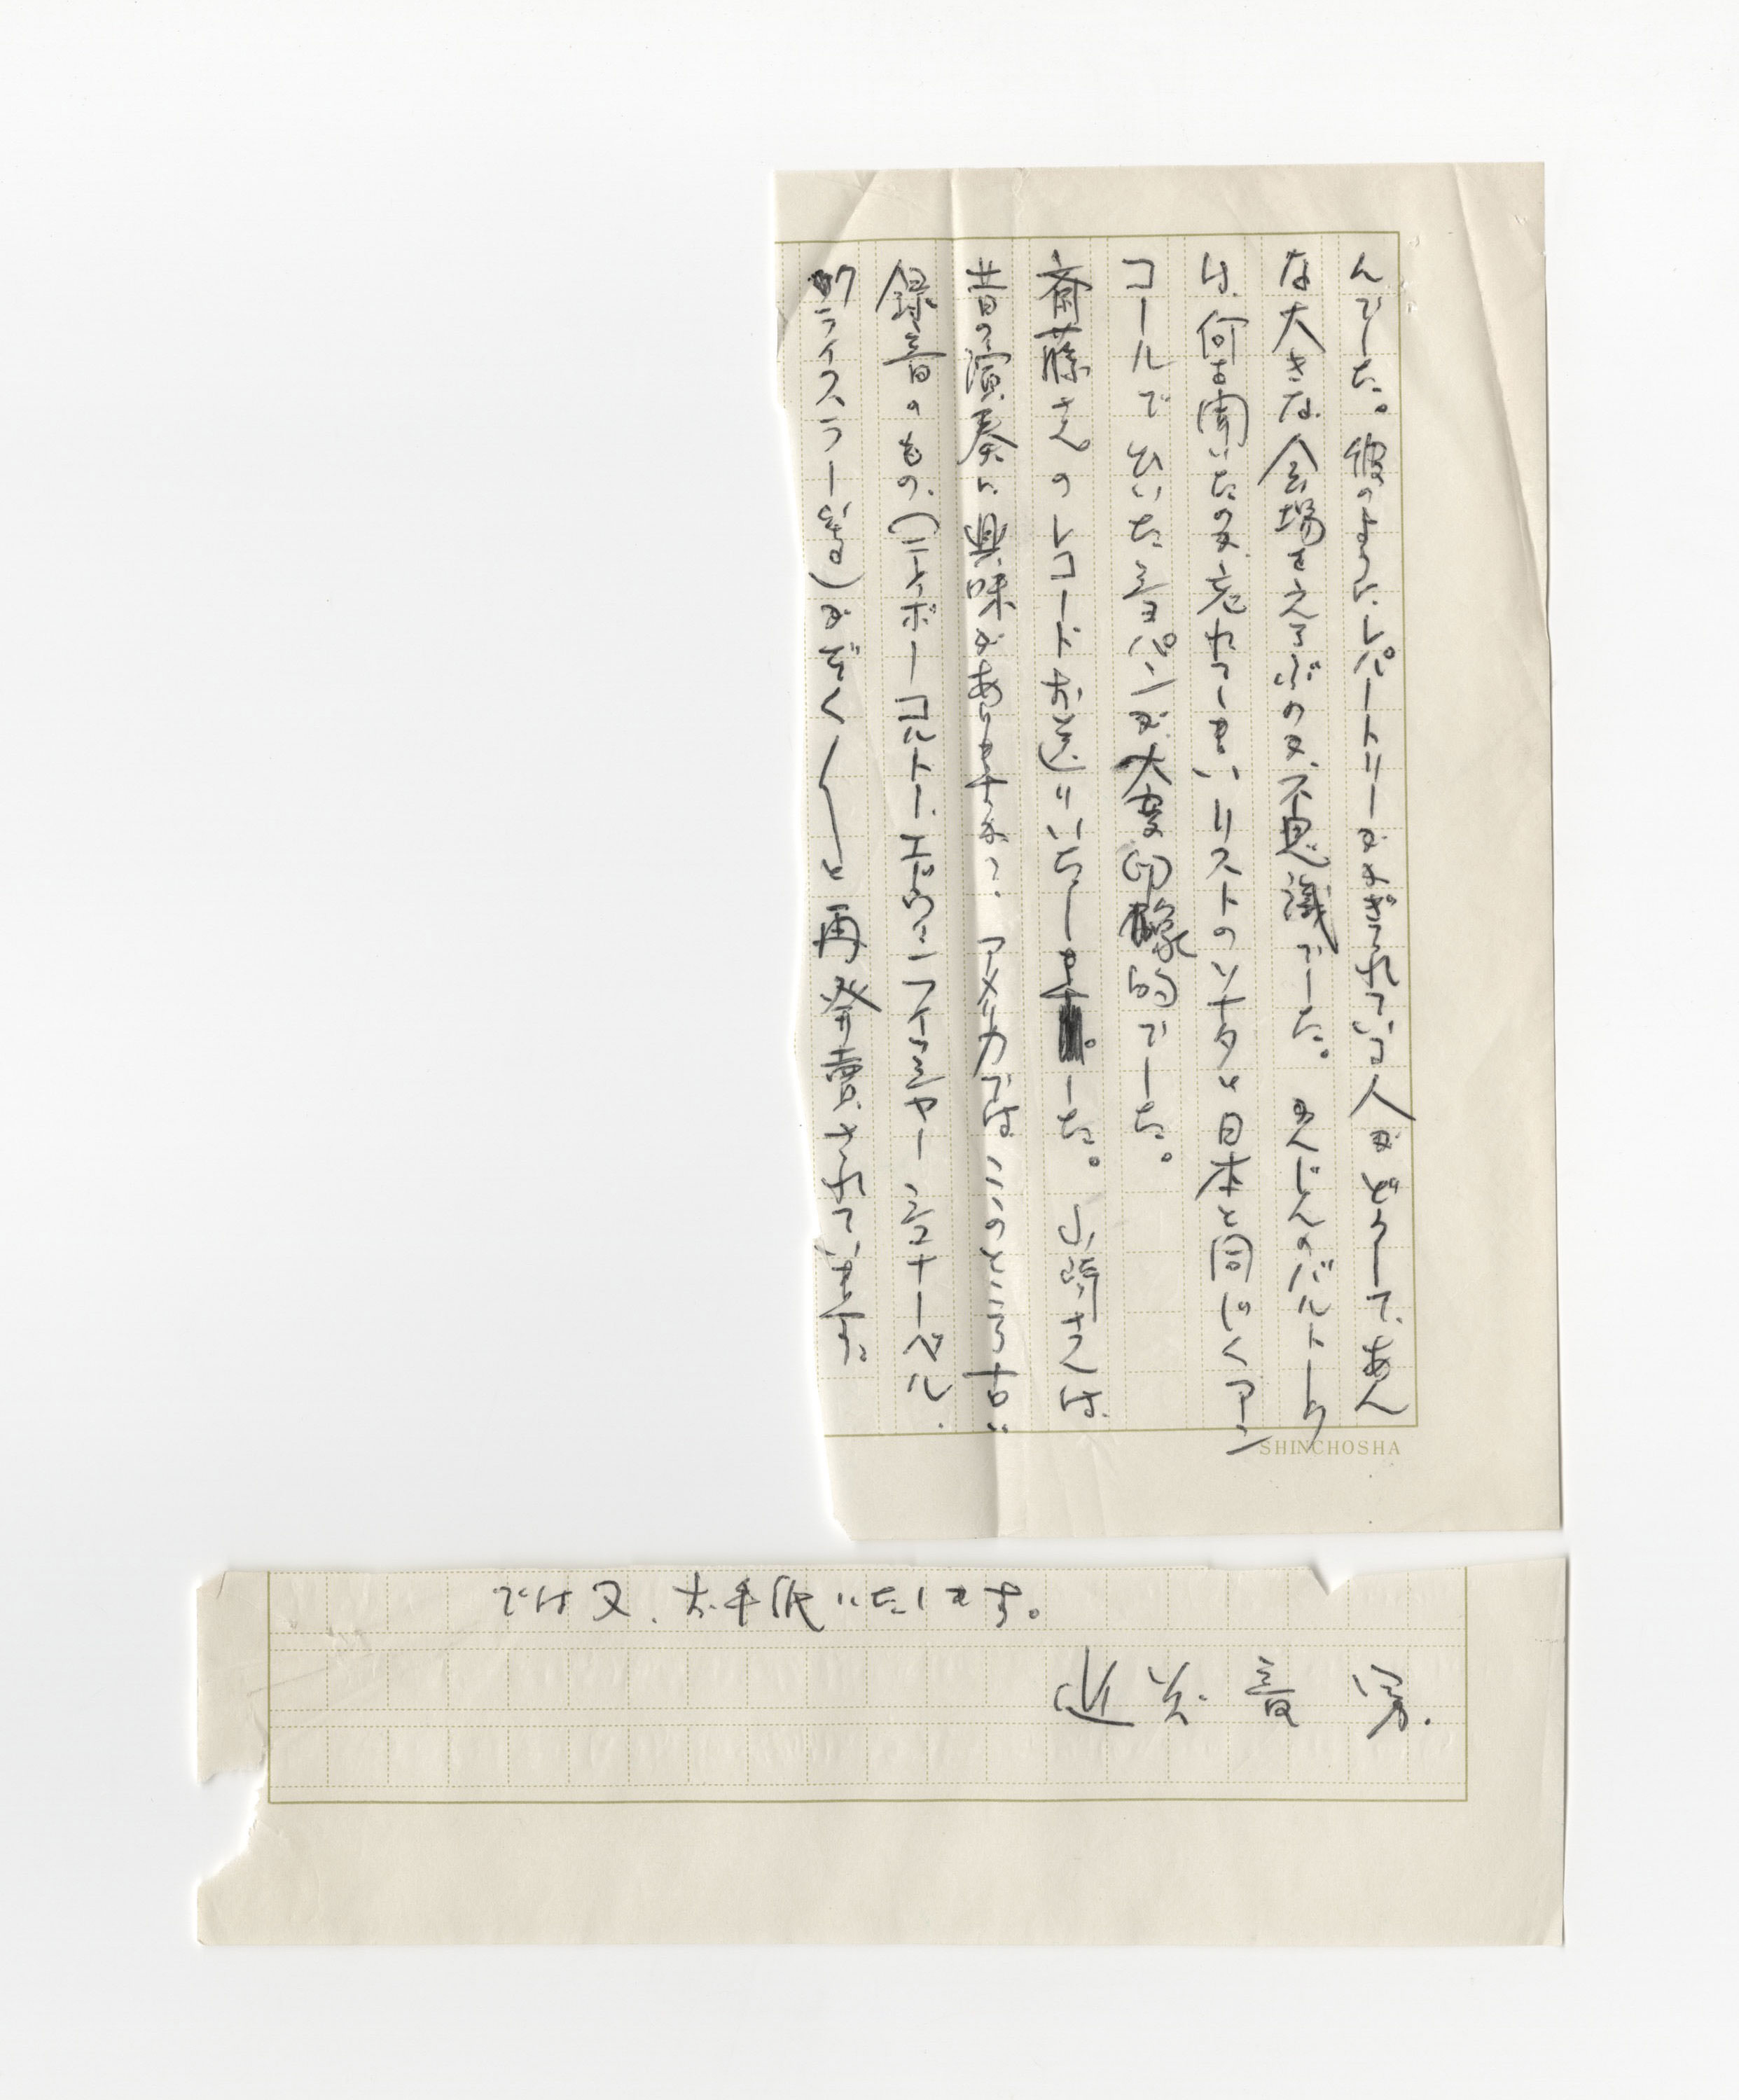 んでした。彼のようにレパートリーがかぎられている人がどうして、あん
な大きな会場をえらぶのか不思議でした。かんじんのバルトーク
は、何を聞いたのか忘れてしまい、リストのソナタと日本と同じくアン
コールでひいたショパンが大変印象的でした。
斎藤さんのレコードお送りいたしました。山崎さんは、
昔の演奏に興味がありますか？アメリカではここのところ古い
録音のもの、(ティボー、コルトー、エドウィンフィッシャー、シュナーベル、
クライスラーなど)がぞく〳〵と再発売されています。
SHINCHOSHA
では又、お手紙いたします。
近藤音男.